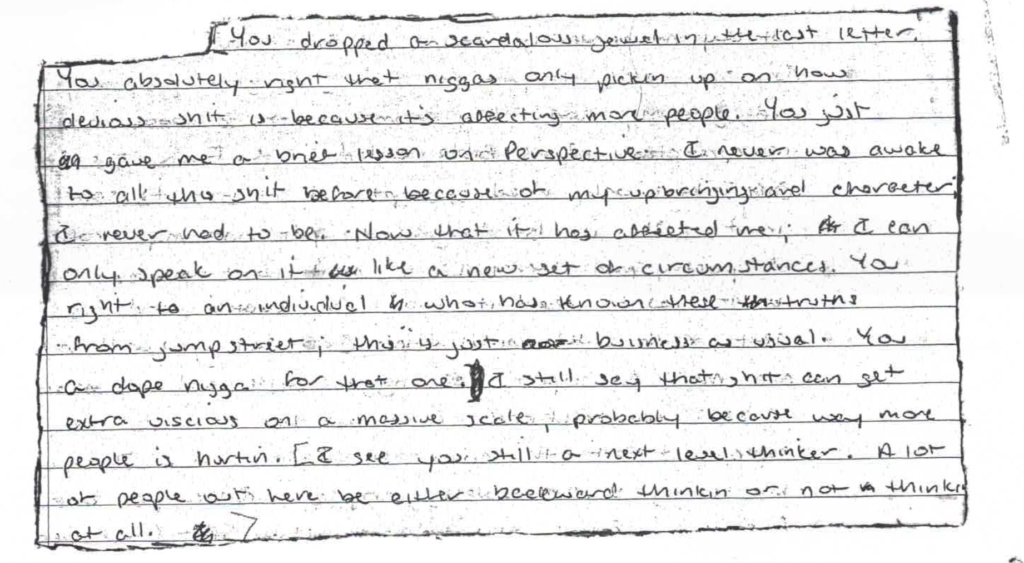 [ You dropped a scandalous jewel in the last letter.
You absolutely right that niggas only pickin up on how
devious shit is because it's affecting more people. You just
gave me a brief lesson on Perspective. I never was awake
to all this shit before because of my upbringing and character;
I never had to be. Now that it has affected me, I can
only speak on it like a new set of circumstances. You
right to an individual who has known these truths
from jumpstreet, this is just business as usual. You
a dope nigga for that one. I still say that shit can get
extra viscious on a massive scale, probably because way more
people is hurtin. [ I see you still a next level thinker. A lot
of people out here be either backward thinkin or not thinkin
at all.